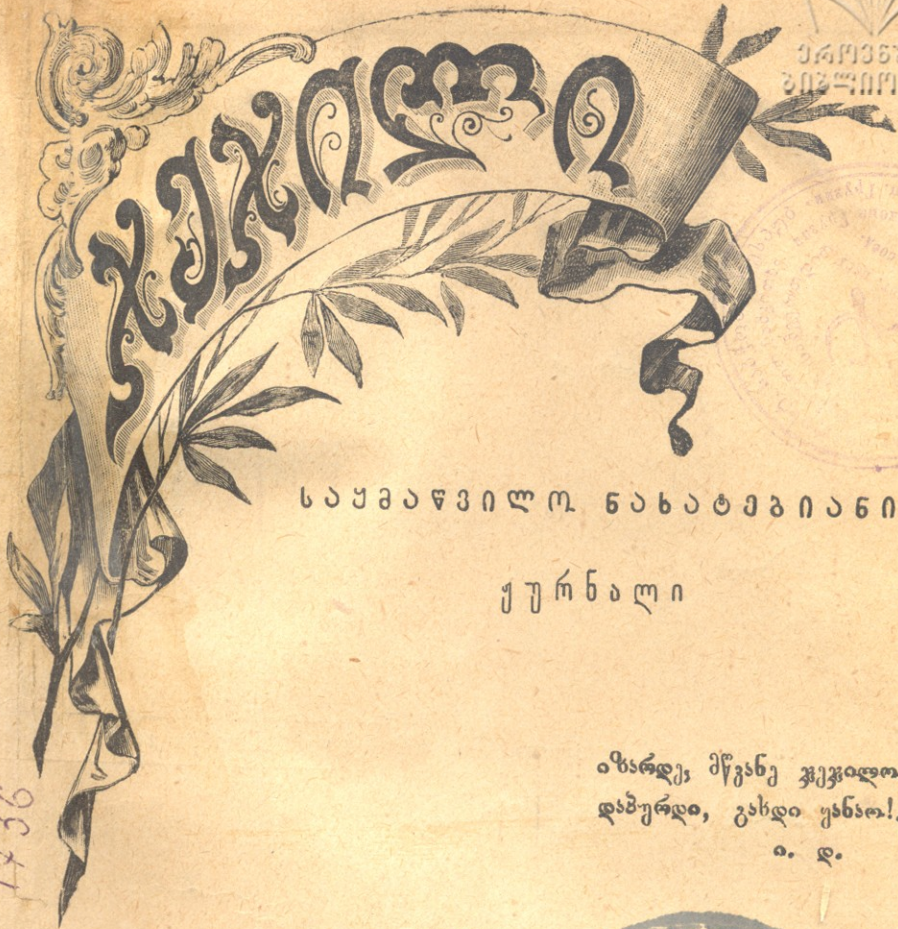 ჯეჯილი
საყმაწვილო ნახატებიანი
ჟურნალი
იზარდე, მწვანე ჯეჯილო,
დაპურდი, გახდი ყანაო!..
ი. დ.
1736